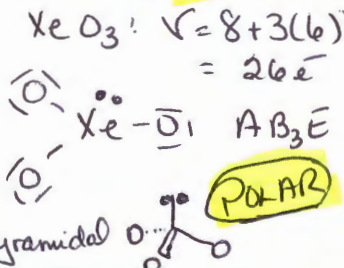 XeO₃: V = 8 + 3(6)
= 26e⁻
O
Xe – O AB₃E
O
POLAR
yramidal O O
O